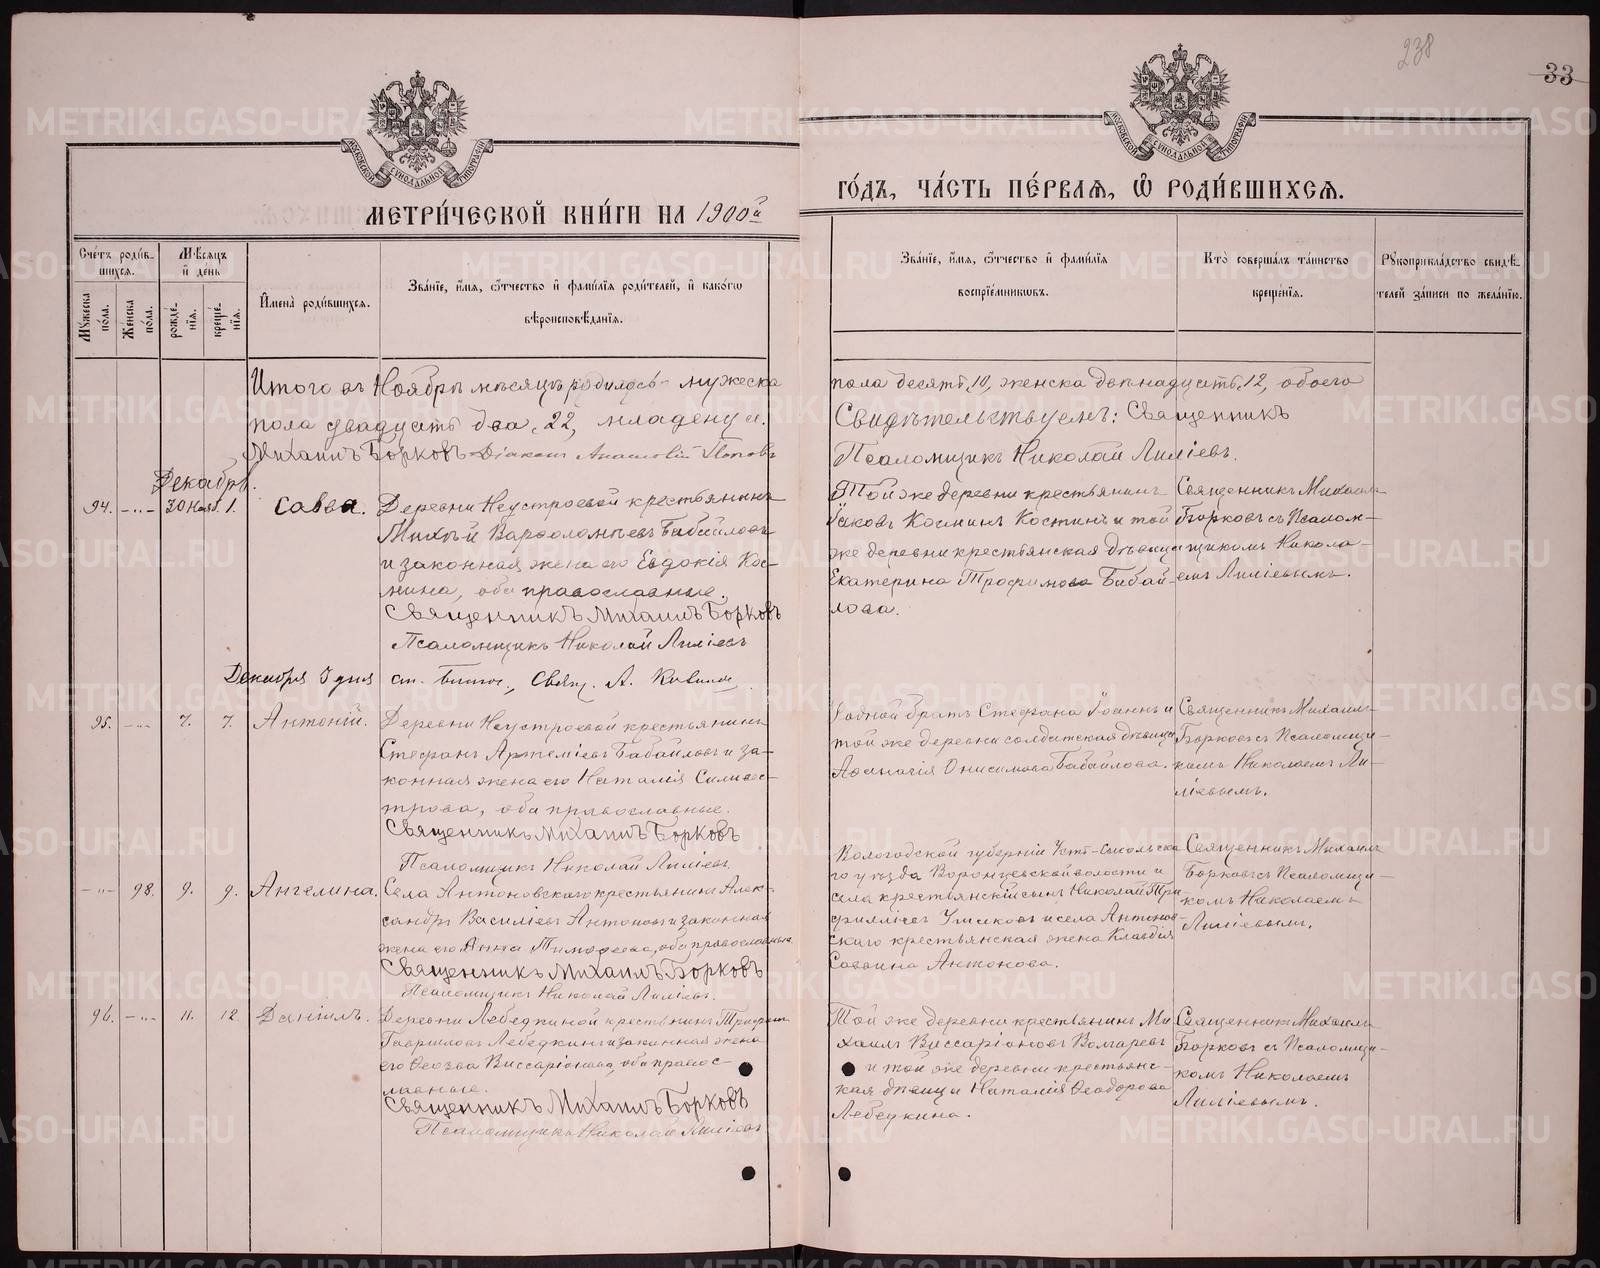 238
33
МЕТРИ́ЧЕСКОЙ КНИ́ГИ НА 1900й
ГО́ДЪ, ЧА́СТЬ ПЕ́РВАѦ, Ѿ РОДИ́ВШИХСѦ.
МОСКОВСКОЙ СѴНОДАЛЬНОЙ ТИПОГРАФІИ
МОСКОВСКОЙ СѴНОДАЛЬНОЙ ТИПОГРАФІИ
Сче́тъ роди́вшихся.
Мѣ́сяцъ и҆ де́нь
Мꙋ́жеска по́ла.
Же́нска по́ла.
рожде́нїя.
креще́нїя.
И҆мена̀ роди́вшихся.
Зва́нїе, и҆́мя, ѻ҆́тчество и҆ фами́лїя роди́телей, и҆ како́гѡ вѣроисповѣ́данїя.
Зва́нїе, и҆́мя, ѻ҆́тчество и҆ фами́лїя воспрїе́мникѡвъ.
Кто̀ соверша́лъ та́инство креще́нїя.
Рꙋкоприкла́дство свидѣ́телей за́писи по жела́нїю.
Итого въ Ноябрѣ мѣсяцѣ родилось мужеска
пола десять, 10, женска двѣнадцать, 12, обоего
пола двадцать два, 22, младенца.
Свидѣтельствуемъ: Священникъ
Михаилъ Борковъ Діаконъ Поповъ
Псаломщикъ Николай Лиліевъ.
Декабрь.
94. -"- 30 Нояб. 1. Савва.
Деревни Неустроевой крестьянинъ
Михѣй Варѳоломѣевъ Бабайловъ
и законная жена его Евдокія Кос-
мина, оба православные.
Священникъ Михаилъ Борковъ
Псаломщикъ Николай Лиліевъ
Той же деревни крестьянинъ
Іаковъ Косминъ Костинъ и той
же деревни крестьянская дѣвица
Екатерина Трофимова Бабай-
лова.
Священникъ Михаилъ
Борковъ съ Псалом-
щикомъ Никола-
емъ Лиліевымъ.
Декабря 5 дня Свящ. А.
95. -"- 7. 7. Антоній.
Деревни Неустроевой крестьянинъ
Стефанъ Артеміевъ Бабайловъ и за-
конная жена его Наталія Силивес-
трова, оба православные.
Священникъ Михаилъ Борковъ
Псаломщикъ Николай Лиліевъ.
Родной братъ Стефана Іоаннъ и
той же деревни солдатская дѣвица
Аѳанасія Онисимова Бабайлова.
Священникъ Михаилъ
Борковъ съ Псаломщи-
комъ Николаемъ Ли-
ліевымъ.
-"- 98. 9. 9. Ангелина.
Села Антоновскаго крестьянинъ Алек-
сандръ Василіевъ Антоновъ и законная
жена его Анна Тимоѳеева, оба православные.
Священникъ Михаилъ Борковъ
Псаломщикъ Николай Лиліевъ.
Вологодской губерніи Усть-Сысольска-
го уѣзда Воронцевской волости и
села крестьянскій сынъ Николай Три-
филліевъ и села Антонов-
скаго крестьянская жена Клавдія
Саввина Антонова.
Священникъ Михаилъ
Борковъ съ Псаломщи-
комъ Николаемъ
Лиліевымъ.
96. -"- 11. 12. Даніилъ.
Деревни Лебедкиной крестьянинъ
Гавриловъ Лебедкинъ и законная жена
его Виссаріонова, оба правос-
лавные.
Священникъ Михаилъ Борковъ
Псаломщикъ Николай Лиліевъ
Той же деревни крестьянинъ Ми-
хаилъ Виссаріоновъ
и той же деревни крестьянс-
кая дѣвица Наталія Ѳеодорова
Лебедкина.
Священникъ Михаилъ
Борковъ съ Псаломщи-
комъ Николаемъ
Лиліевымъ.
METRIKI.GASO-URAL.RU